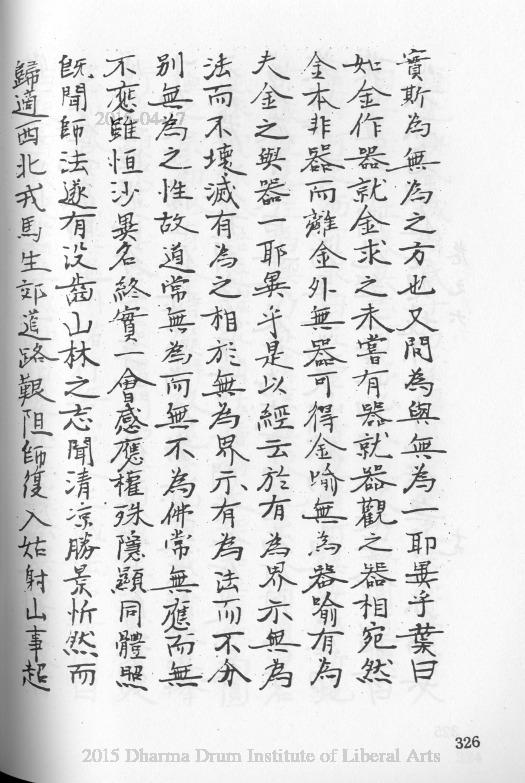 實斯為無為之方也又問為與無為一耶異乎葉曰
如金作器就金求之未嘗有器就器觀之器相宛然
金本非器而離金外無器可得金喻無為器喻有為
夫金之與器一耶異乎是以經云於有為界示無為
法而不壞滅有為之相於無為界示有為法而不分
別無為之性故道常無為而無不為佛常無應而無
不應雖恒沙異名終實一會感應權殊隱顯同體照
既聞師法遂有沒齒山林之志聞清凉勝景忻然而
歸適西北戎馬生郊道路艱阻師復入姑射山事超
326
2015 Dharma Drum Institute of Liberal Arts